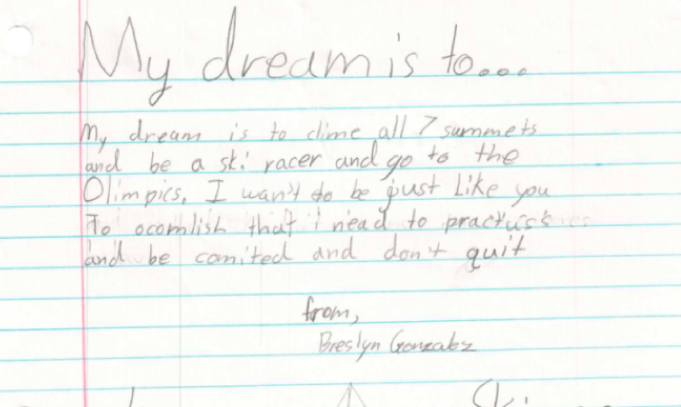 My dream is to...
My dream is to clime all 7 summets
and be a ski racer and go to the
Olimpics, I want to be just like you
To ocomlish that i nead to practiss
and be comited and don't quit
from,
Breslyn Gonzalez